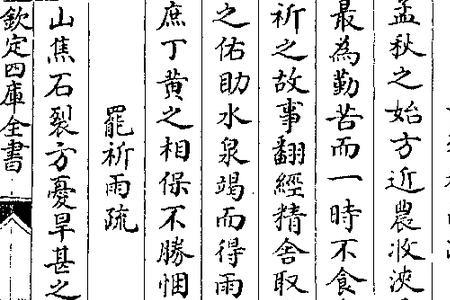 孟秋之始方近農收浹
最為勤苦而一時不食
祈之故事翻經精舎取
之佑助水泉竭而得雨
庶丁黄之相保不勝悃
罷祈雨疏
山焦石裂方憂旱甚之
欽定四庫全書